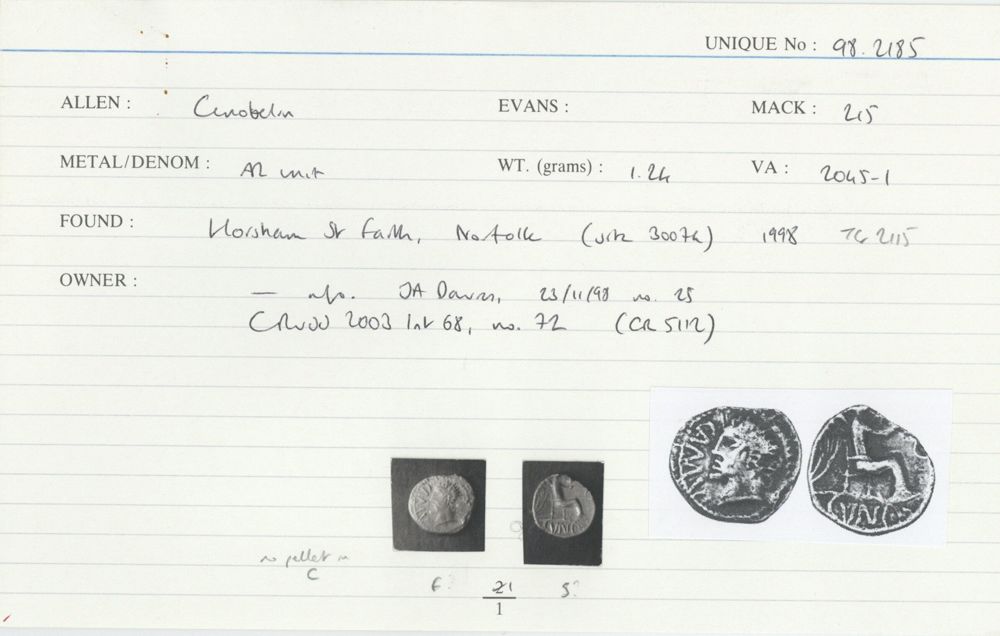 UNIQUE No : 98.2185
ALLEN : Cunobelin EVANS : MACK : 215
METAL/DENOM : AR unit WT. (grams) : 1.24 VA : 2045-1
FOUND : Horsham St Faith, Norfolk (site 30074) 1998 TG 2115
OWNER : — info. JA Davies, 23/11/98 no. 25
2003 List 68, no. 72 (CR 5112)
CAMVL
CVNO
no pellet in
C
21
1